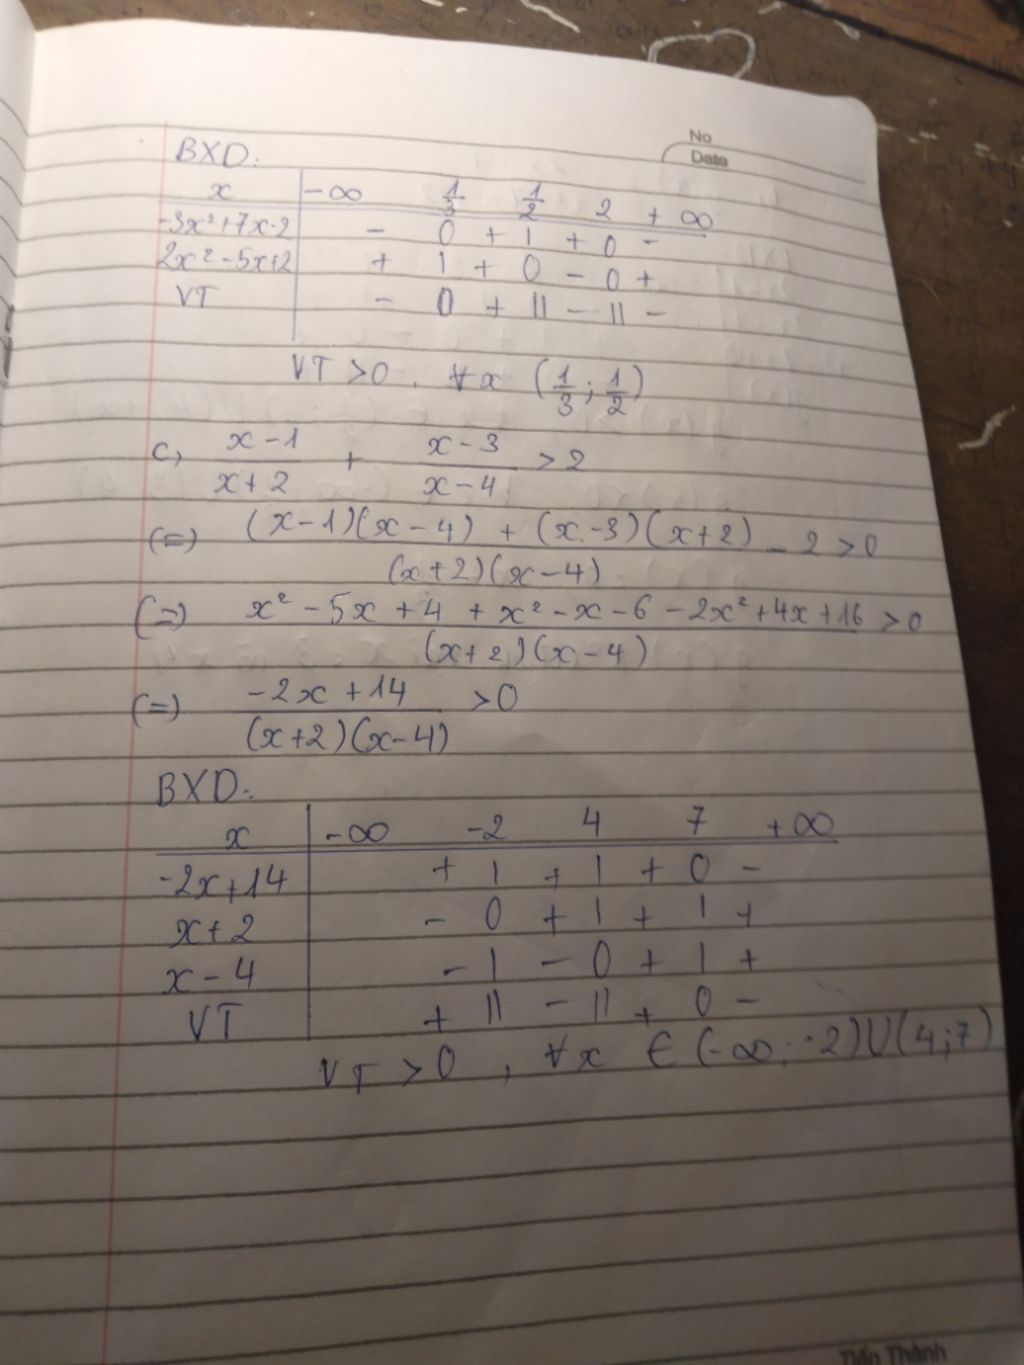 No
Date
BXD.
x | -∞ 1/3 1/2 2 +∞
-3x²+7x-2 | - 0 + | + 0 -
2x²-5x+2 | + | + 0 - 0 +
VT | - 0 + || - || -
VT >0, ∀x (1/3; 1/2)
c, (x-1)/(x+2) + (x-3)/(x-4) >2
(=) ((x-1)(x-4) + (x-3)(x+2))/((x+2)(x-4)) - 2 >0
(=) (x² - 5x + 4 + x² - x - 6 - 2x² + 4x + 16)/((x+2)(x-4)) >0
(=) (-2x+14)/((x+2)(x-4)) >0
BXD.
x | -∞ -2 4 7 +∞
-2x+14 | + | + | + 0 -
x+2 | - 0 + | + | +
x-4 | - | - 0 + | +
VT | + || - || + 0 -
VT >0, ∀x ∈ (-∞; -2)U(4;7)
Tiến Thành